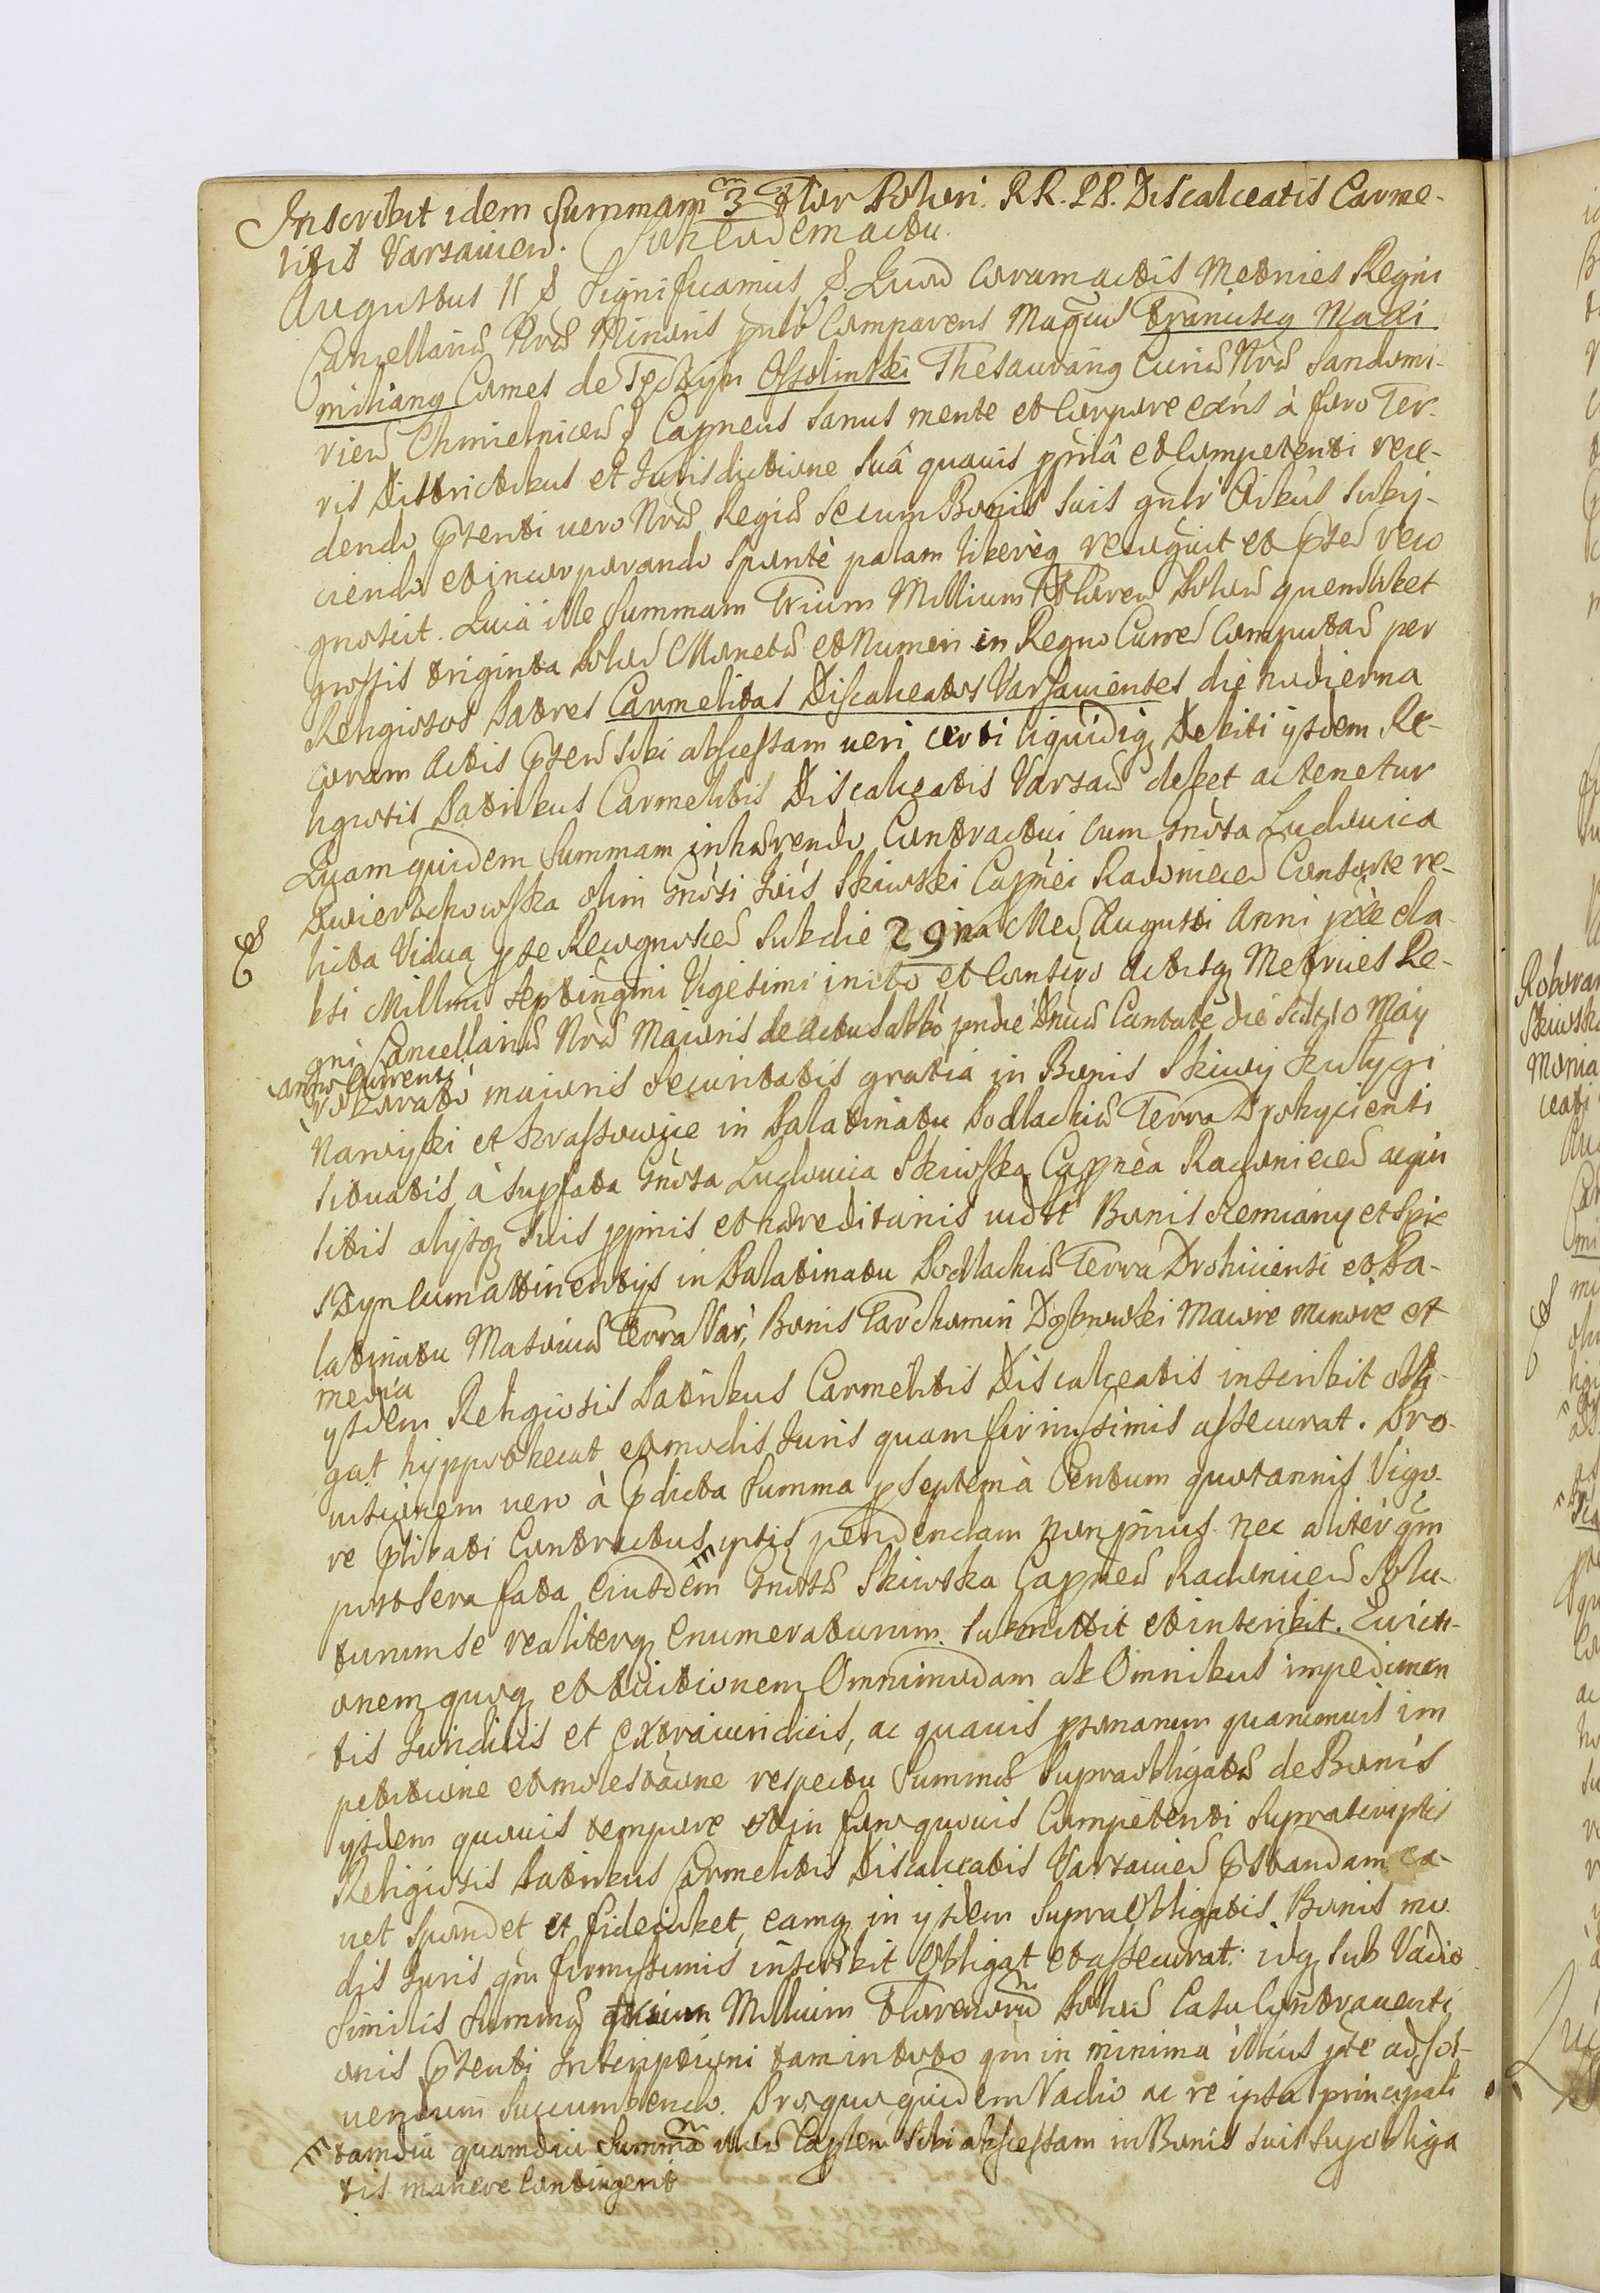 Inscribit idem Summam 3 m Flor Polon. RR. PP. Discalceatis Carme-
litis Varsavien. Sub eodem actu.
Augustus II &. Significamus &. Quod coram actis Metrices Regni
Cancellariæ Nræ Minoris pnlr Comparens Magcus Franciscq Maxi
milianq Comes de Tęczyn Ossolinski Thesaurariq Curiæ Nræ Sandomi-
rien Chmielnicen & Capneus sanus mente et corpore exns à foro Ter-
ris Districtibus et Jurisdictione suâ quavis ppriâ et Competenti rece-
dendo psenti vero Nræ Regiæ se cum Bonis suis gnlr oibus subij-
ciendo et incorporando sponte palam libereq recognit et pser reco
gnoscit. Quia ille Summam Trium Millium Floren Polon quemlibet
grossis triginta Polon Monetæ et Numeri in Regno Curren Computan per
Religiosos Patres Carmelitas Discalceatos Varsavienses die hodierna
coram Actis psen sibi abscessam veri certi liquidiq Debiti ijsdem Re-
ligiosis Patribus Carmelitis Discalceatis Varsav debet ac tenetur
Quam quidem Summam inhærendo Contractui cum Gnosa Ludovica
Swierzchowska olim Gnosi Jois Skiwski Capnei Radonicen Consorte re-
licta Vidua pse Recognoscen sub die 29na Men Augusti Anni pxe ela-
bsi Millmi septingmi Vigesimi inito et Confecto Actisq Metrices Re-
gni Cancellariæ Nræ Maioris de Actu Sabbo pndie Dnicæ Cantate die scilz 10 May
anno Currenti
roborato maioris securitatis gratia in Bonis Skiwy
et Krassowice in Palatinatu Podlachiæ Terra Drohycensi
situatis, à supfata Gnosa Ludovica Skiwska Capnea Radonicen acqui
sitis alijsq suis pprijs et hæreditarijs vidlt Bonis Remiany et Spie
szyn cum attinentijs in Palatinatu Podlachiæ Terra Drohiciensi et Pa-
latinatu Masoviæ Terra Var, Bonis Tarchomin Dąbrowki Maiore minore et
media
ijsdem Religiosis Patribus Carmelitis Discalceatis inscribit obli-
gat hyppothecat et modis Juris quam firmissimis assecurat. Pro-
visionem vero à pdicta Summa p septem à Centum quotannis Vigo-
re plibati Contractus ipsis pendendam non prius nec aliter qm
post sera fata Eiusdem Gnosæ Skiwska Capneæ Radonicen Solu-
turum se realiterq Enumeraturum. submittit et inscribit. Evicti-
onem quoq et tuitionem Omnimodam ab Omnibus impedimen
tis Juridicis et Extraiuridicis, ac quavis psonarum quarumvis im
petitione et molestaone respectu Summæ supraobligatæ de Bonis
ijsdem quovis tempore et in foro quovis Competenti suprascriptis
Religiosis Patribus Carmelitis Discalceatis Varsavien pstandam ca-
vet spondet et fideiubet, eamq in ijsdem supra Obligatis Bonis mo-
dis Juris qm firmissimis inscribit Obligat et assecurat: idq sub Vadio
similis Summæ trium Millium Florenorum Polon Casu Contraventi
onis psenti Inscriptioni tam in toto qm in minima illius pte ad sol-
vendum succumbendo. Pro quo quidem Vadio ac re ipsa principali
tamdiu quamdiu Summa illa Capten sibi abscessam in Bonis suis supobliga
tis manere contingerit